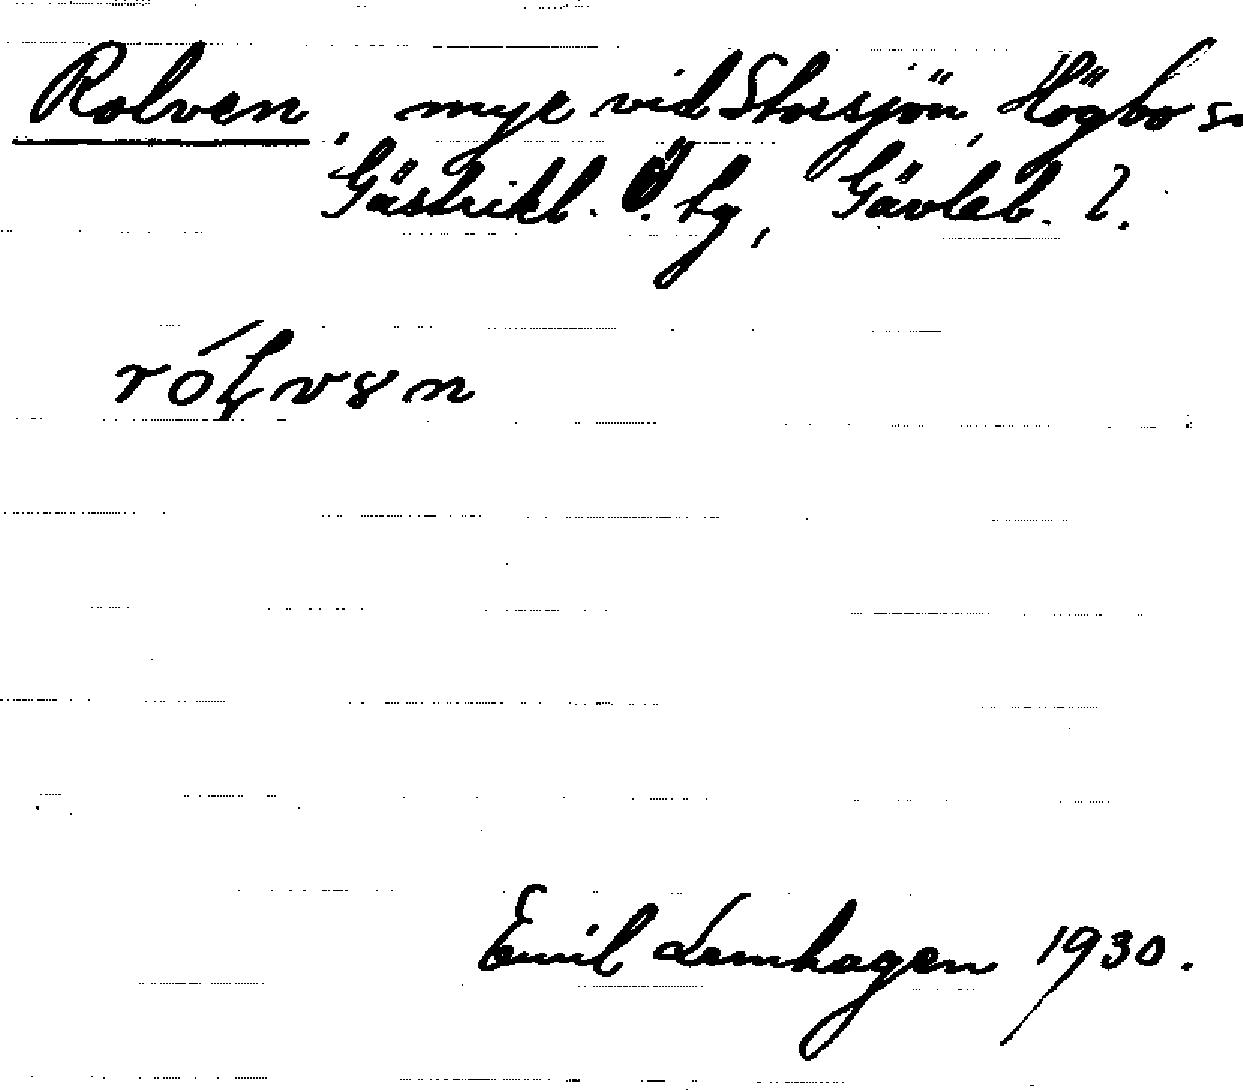 Rolven, myr vid Storsjön, Högbo sn
Gästrikl. Ö. tg, Gävleb. l.
rólven
Emil Lemhagen 1930.